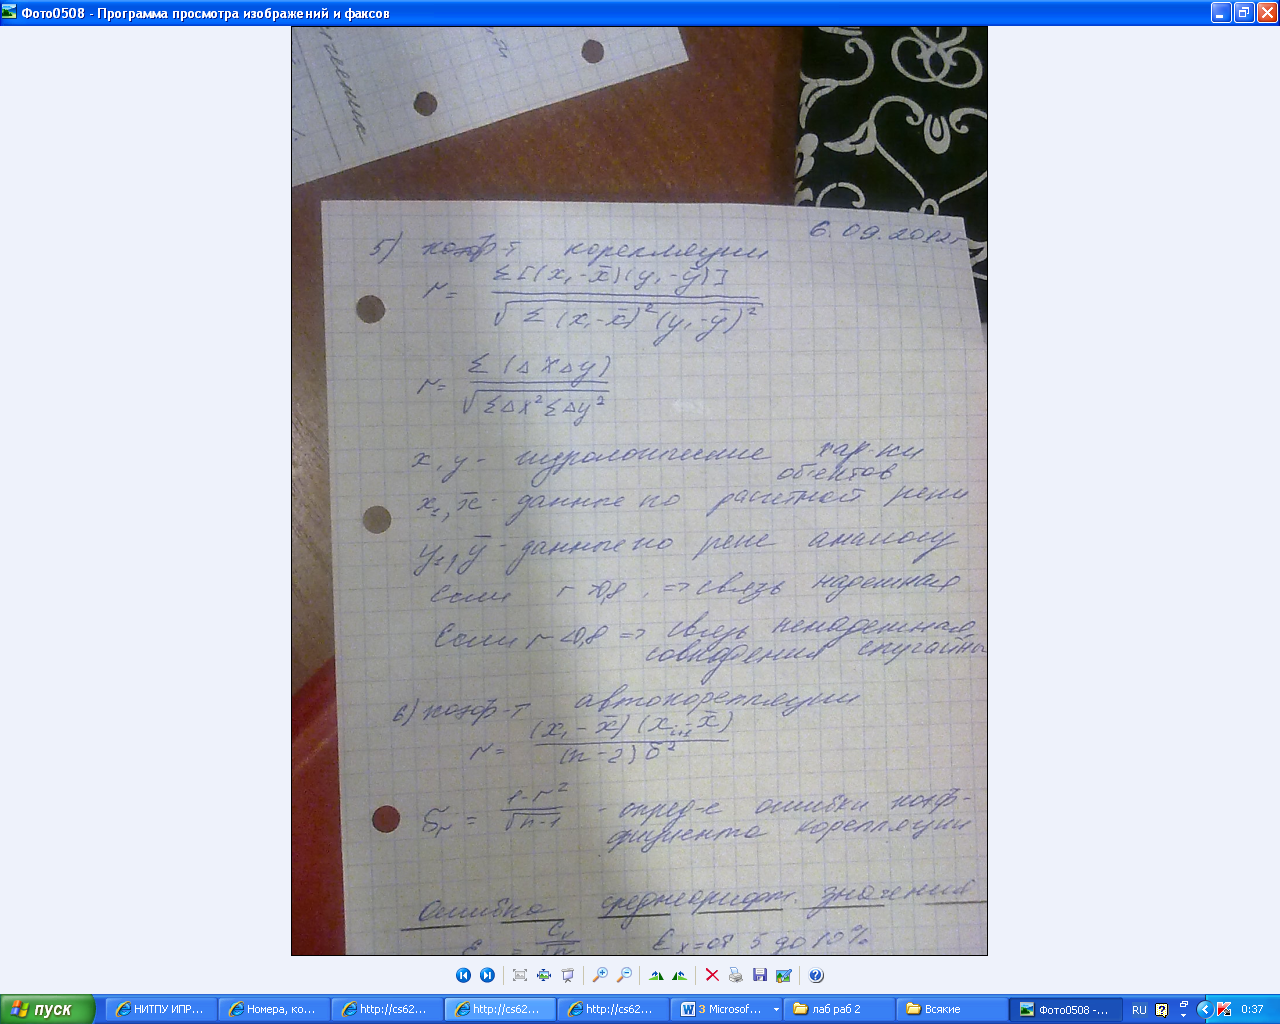 Фото0508 - Программа просмотра изображений и факсов
6.09.2012г
5) коэф-т кореляции
r = Σ[(x₁-x̄)(y₁-ȳ)] / √Σ(x₁-x̄)²(y₁-ȳ)²
r = Σ(ΔxΔy) / √ΣΔx²ΣΔy²
x, y - гидрологические хар-ки
объектов
x₁, x̄ - данные по расчетной реки
y₁, ȳ - данные по реке аналогу
Если r >0,8, => связь надежная
Если r <0,8 => связь ненадежная,
совпадения случайны
6) коэф-т автокореляции
r = (x₁-x̄)(xᵢ₊₁-x̄) / (n-2)б²
бᵣ = 1-r² / √n-1 - опред-е ошибки коэф-
фициента кореляции
Ошибка среднеарифм. значения
Ɛ = Cv / √n Ɛx = от 5 до 10%
пуск
НИТПУ ИПР...
Номера, ко...
http://cs62...
http://cs62...
http://cs62...
3 Microsof...
лаб раб 2
Всякие
Фото0508 -...
RU
0:37